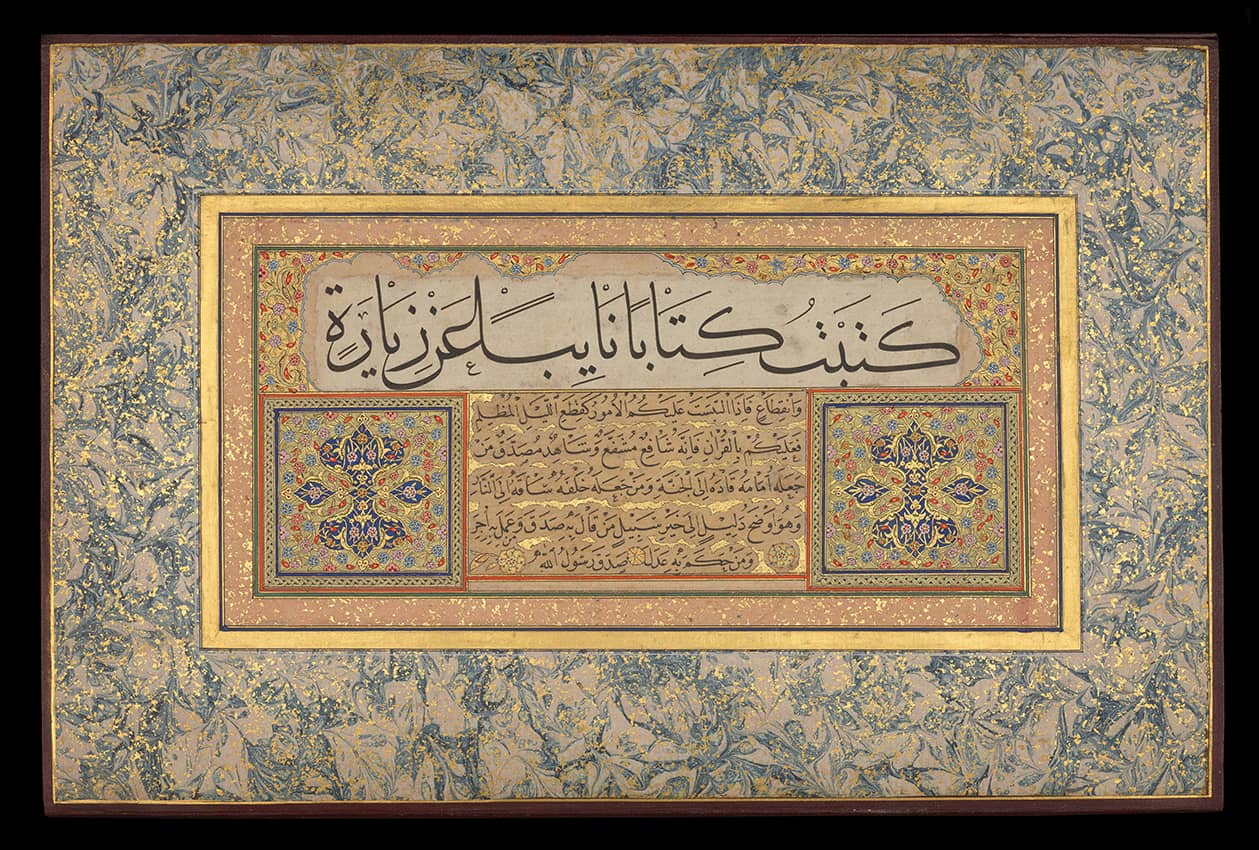 كَتَبْتُ كِتَابًا نَايِبًا عَنْ زِيَارَةٍ
وَانقطاع فَاذا التبست عليكم الأمور كقطع الليل المظلم
فعليكم بالقرآن فانه شافع مشفع وشاهد مصدق من
جعله أمامه قاده إلى الجنة ومن جعله خلفه ساقه إلى النار
وهو أوضح دليل إلى خير سبيل من قال به صدق وعمل به أجر
ومن حكم به عدل صدق رسول الله